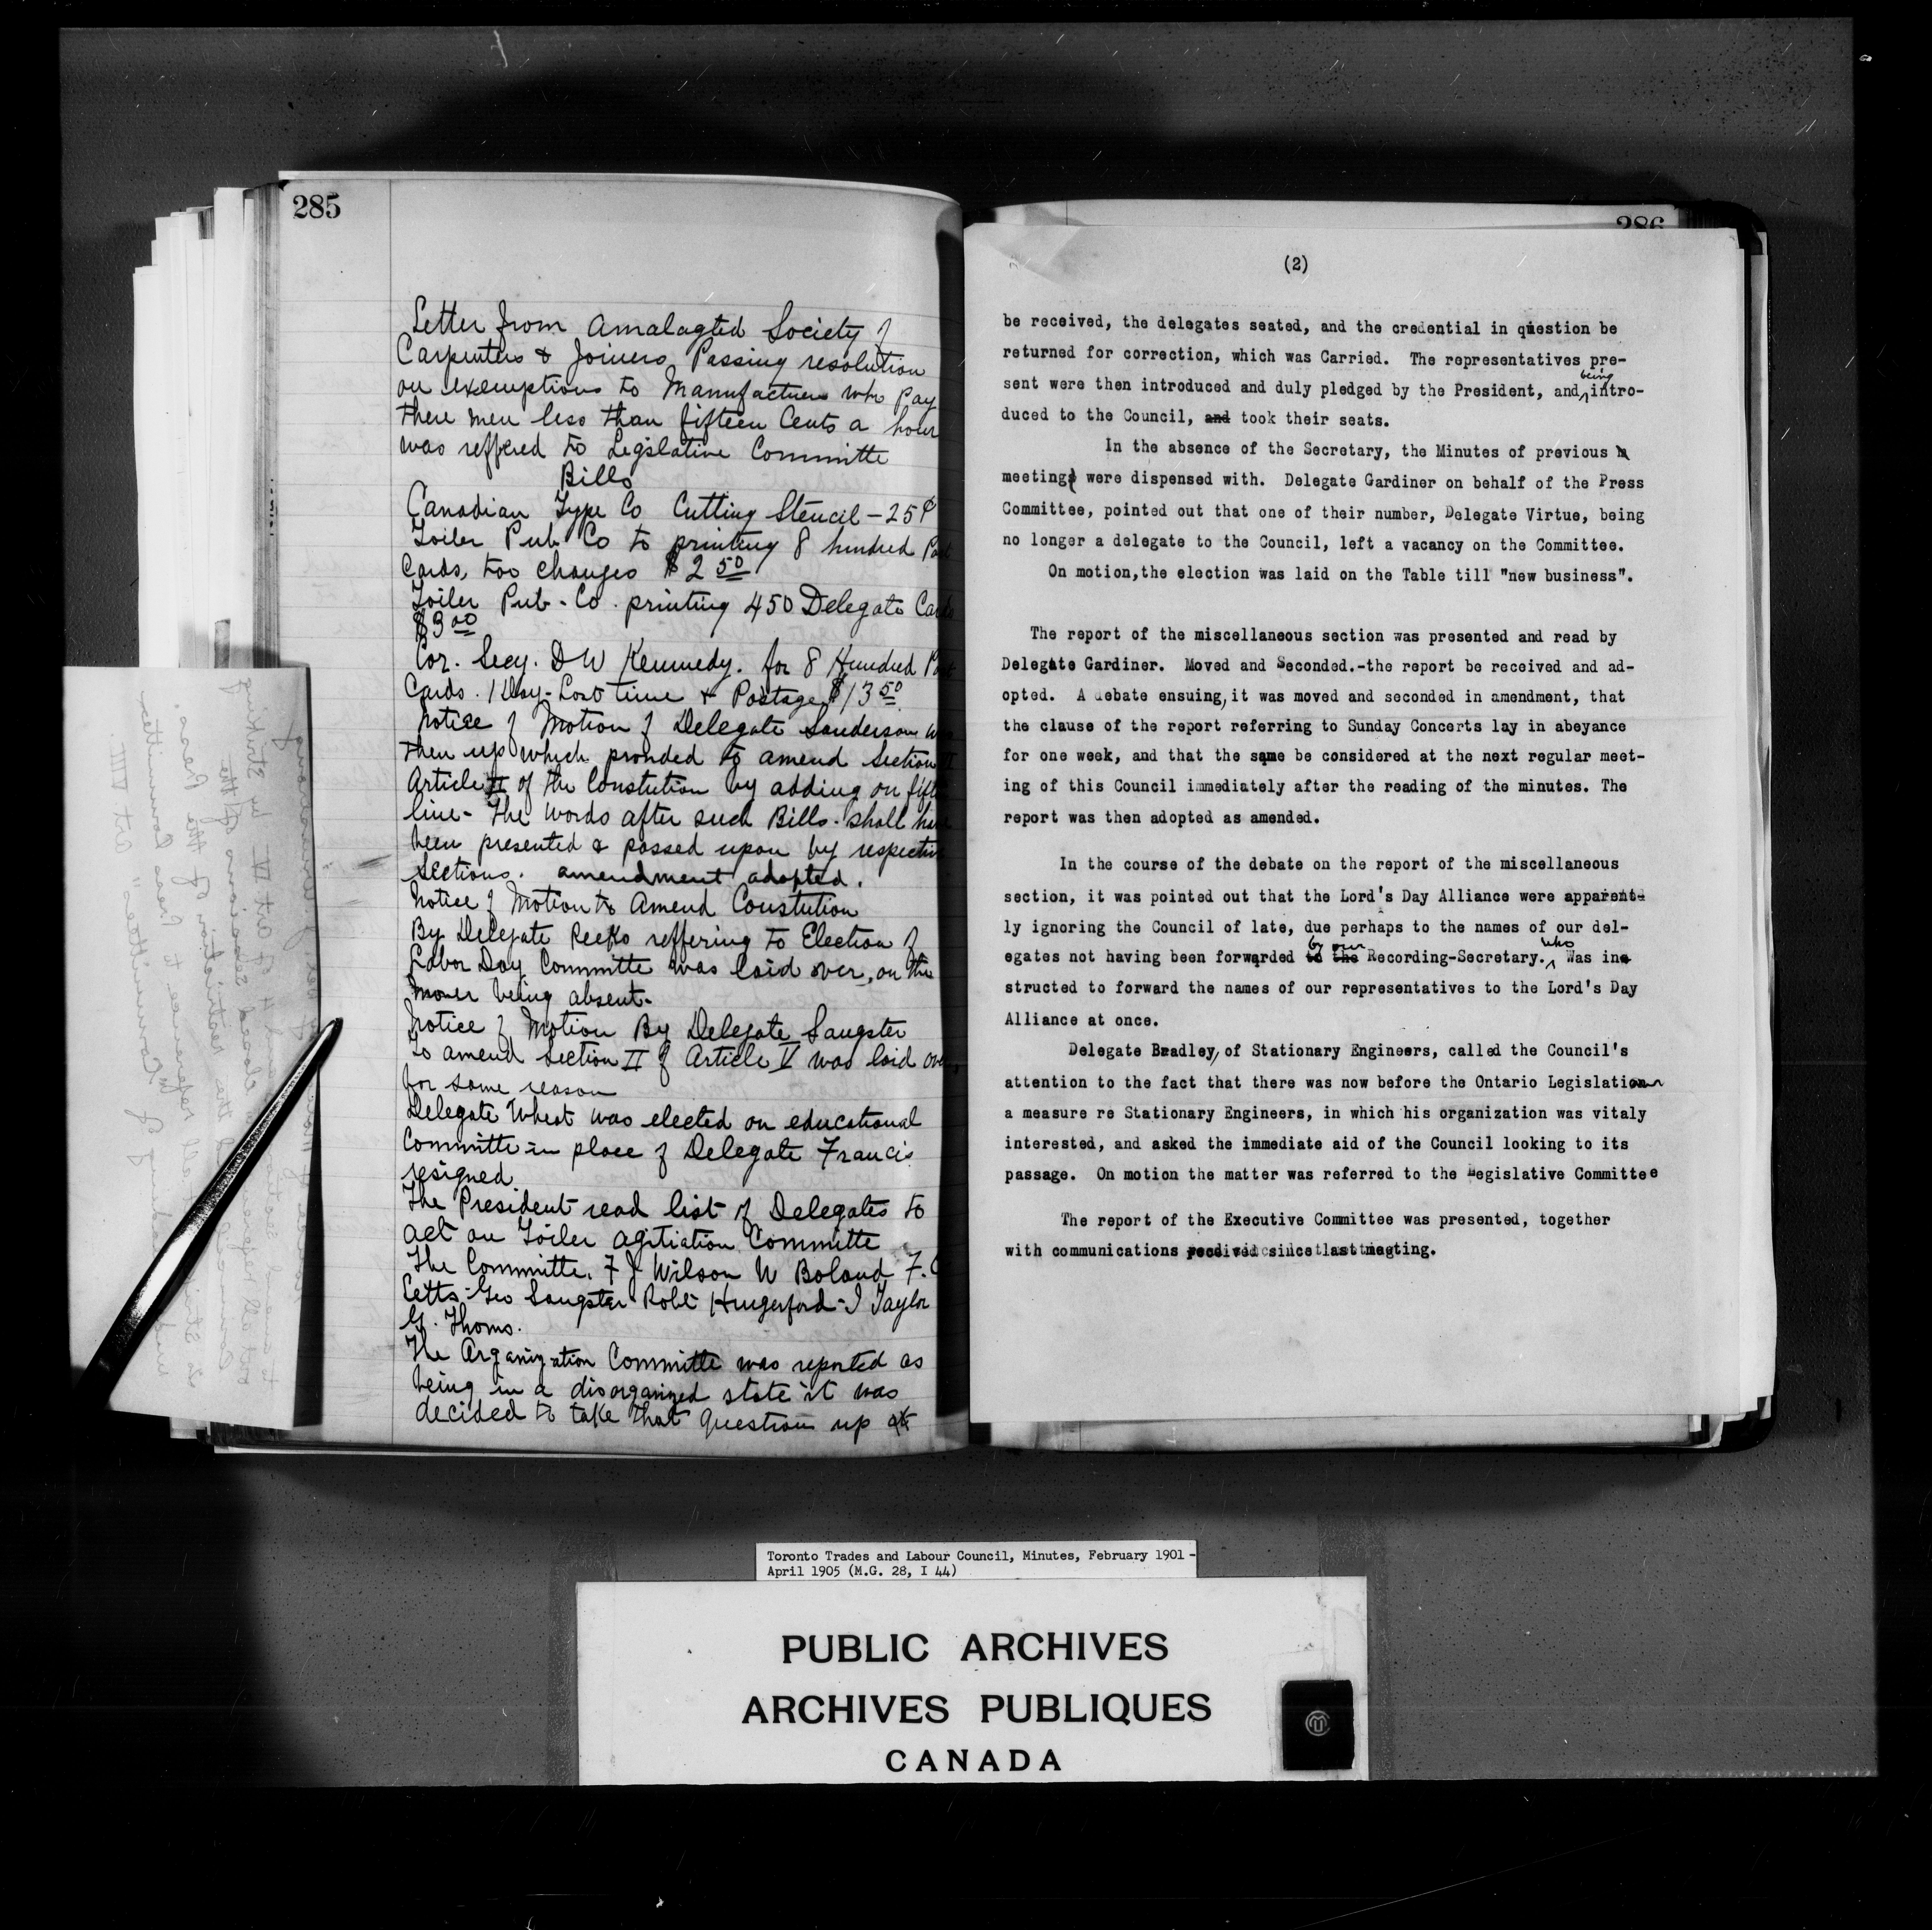 285
Letter from Amalagted Society of
Carpenters & Joiners Passing resolution
on exemptions to Manufactuers who Pay
there men less than fifteen Cents a hour
was reffered to Legslative Committe
Bills
Canadian Type Co Cutting Stencil - 25¢
Toiler Pub Co to printing 8 hundred Post
Cards, too changes $2 50
Toiler Pub - Co. printing 450 Delegate Cards
$3 00
Cor. Secy. D W Kennedy. for 8 Hundred Post
Cards. 1 Day - Lost time & Postage $13 50
Notice of Motion of Delegate Sanderson was
then up which provded to amend Section II
Article II of the Constution by adding on fifth
line - The words after such Bills. shall have
been presented & passed upon by respective
sections. amendment adopted.
Notice of Motion to Amend Constution
By Delegate reffering to Election of
Labor Day Committe was laid over, on the
mover being absent.
Notice of Motion By Delegate Sangster
To amend Section II of Article V was laid over,
for same reason
Delegate Wheat was elected on educational
Committe in place of Delegate Francis
resigned
The President read list of Delegates to
act on Toiler agitiation Committe
The Committe. F J Wilson W Boland F.
Letts - Geo Sangster Robt Hungerford - J Taylor
G. Thoms.
The Organization Committe was reported as
being in a disorganized state it was
decided to take that question up at
286
(2)
be received, the delegates seated, and the credential in question be
returned for correction, which was Carried. The representatives pre-
sent were then introduced and duly pledged by the President, and being intro-
duced to the Council, and took their seats.
In the absence of the Secretary, the Minutes of previous
meeting were dispensed with. Delegate Gardiner on behalf of the Press
Committee, pointed out that one of their number, Delegate Virtue, being
no longer a delegate to the Council, left a vacancy on the Committee.
On motion, the election was laid on the Table till "new business".
The report of the miscellaneous section was presented and read by
Delegate Gardiner. Moved and Seconded.-the report be received and ad-
opted. A debate ensuing, it was moved and seconded in amendment, that
the clause of the report referring to Sunday Concerts lay in abeyance
for one week, and that the same be considered at the next regular meet-
ing of this Council immediately after the reading of the minutes. The
report was then adopted as amended.
In the course of the debate on the report of the miscellaneous
section, it was pointed out that the Lord's Day Alliance were apparent-
ly ignoring the Council of late, due perhaps to the names of our del-
egates not having been forwarded to the by our Recording-Secretary. who Was in-
structed to forward the names of our representatives to the Lord's Day
Alliance at once.
Delegate Bradley, of Stationary Engineers, called the Council's
attention to the fact that there was now before the Ontario Legislature
a measure re Stationary Engineers, in which his organization was vitaly
interested, and asked the immediate aid of the Council looking to its
passage. On motion the matter was referred to the Legislative Committee
The report of the Executive Committee was presented, together
with communications received since last meeting.
Toronto Trades and Labour Council, Minutes, February 1901 -
April 1905 (M.G. 28, I 44)
PUBLIC ARCHIVES
ARCHIVES PUBLIQUES
CANADA